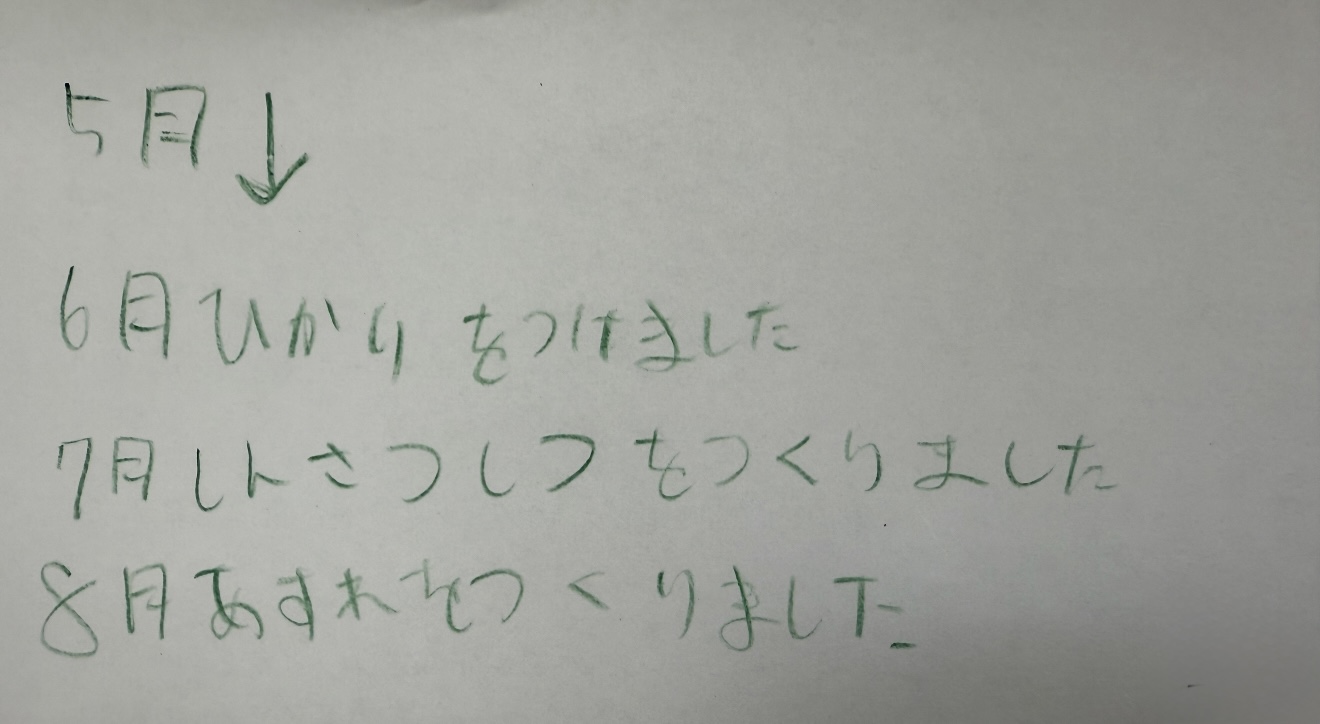 5月↓
6月ひかりをつけました
7月しんさつしつをつくりました
8月あすれをつくりました